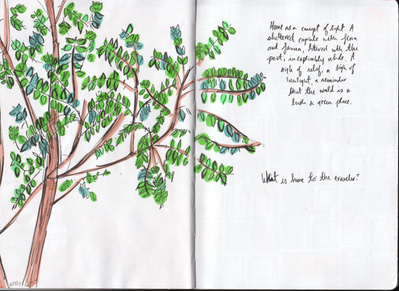 Home as a concept of light. A
shuttered capsule with flora
and fauna, littered with the
past, inexplicably white. A
sigh of relief, a sigh of
twilight, a reminder
that the world is a
lush & green place.
What is home to the traveler?